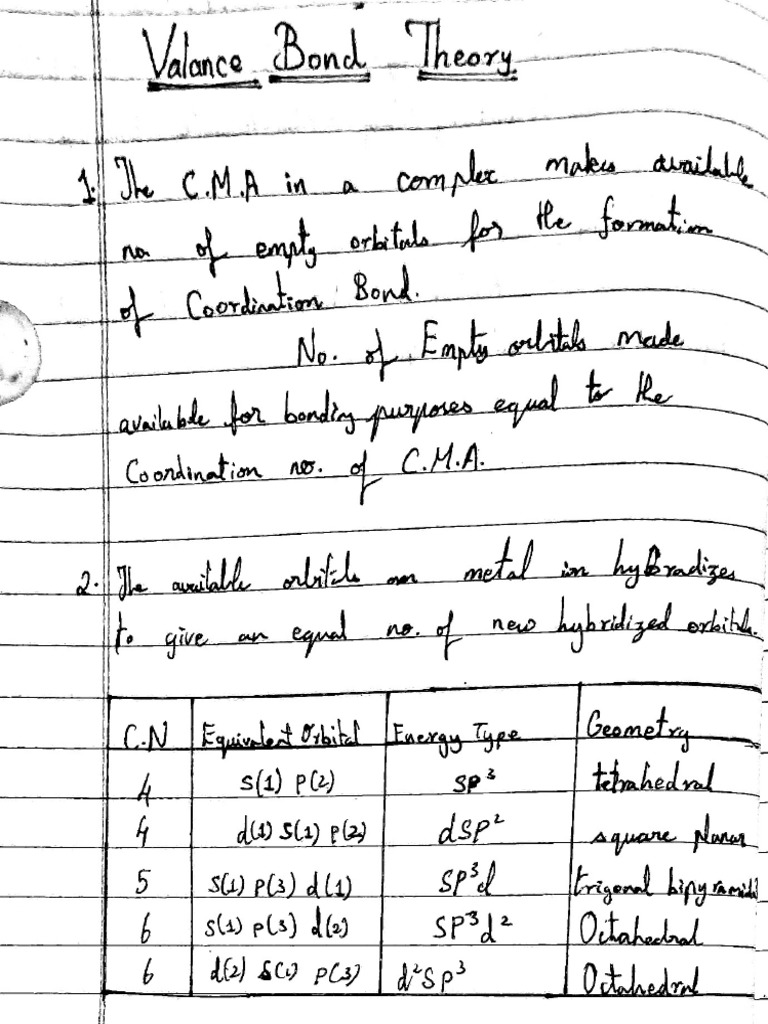 Valance Bond Theory
1. The C.M.A in a complex makes available
no. of empty orbitals for the formation
of Coordination Bond.
No. of Empty orbitals made
available for bonding purposes equal to the
Coordination no. of C.M.A.
2. The available orbitals on metal ion hybradizes
to give an equal no. of new hybridized orbitals.
C.N Equivalent Orbital Energy Type Geometry
4 s(1) p(2) sp³ tetrahedral
4 d(1) s(1) p(2) dsp² square planar
5 s(1) p(3) d(1) sp³d trigonal bipyramidal
6 s(1) p(3) d(2) sp³d² Octahedral
6 d(2) s(1) p(3) d²sp³ Octahedral